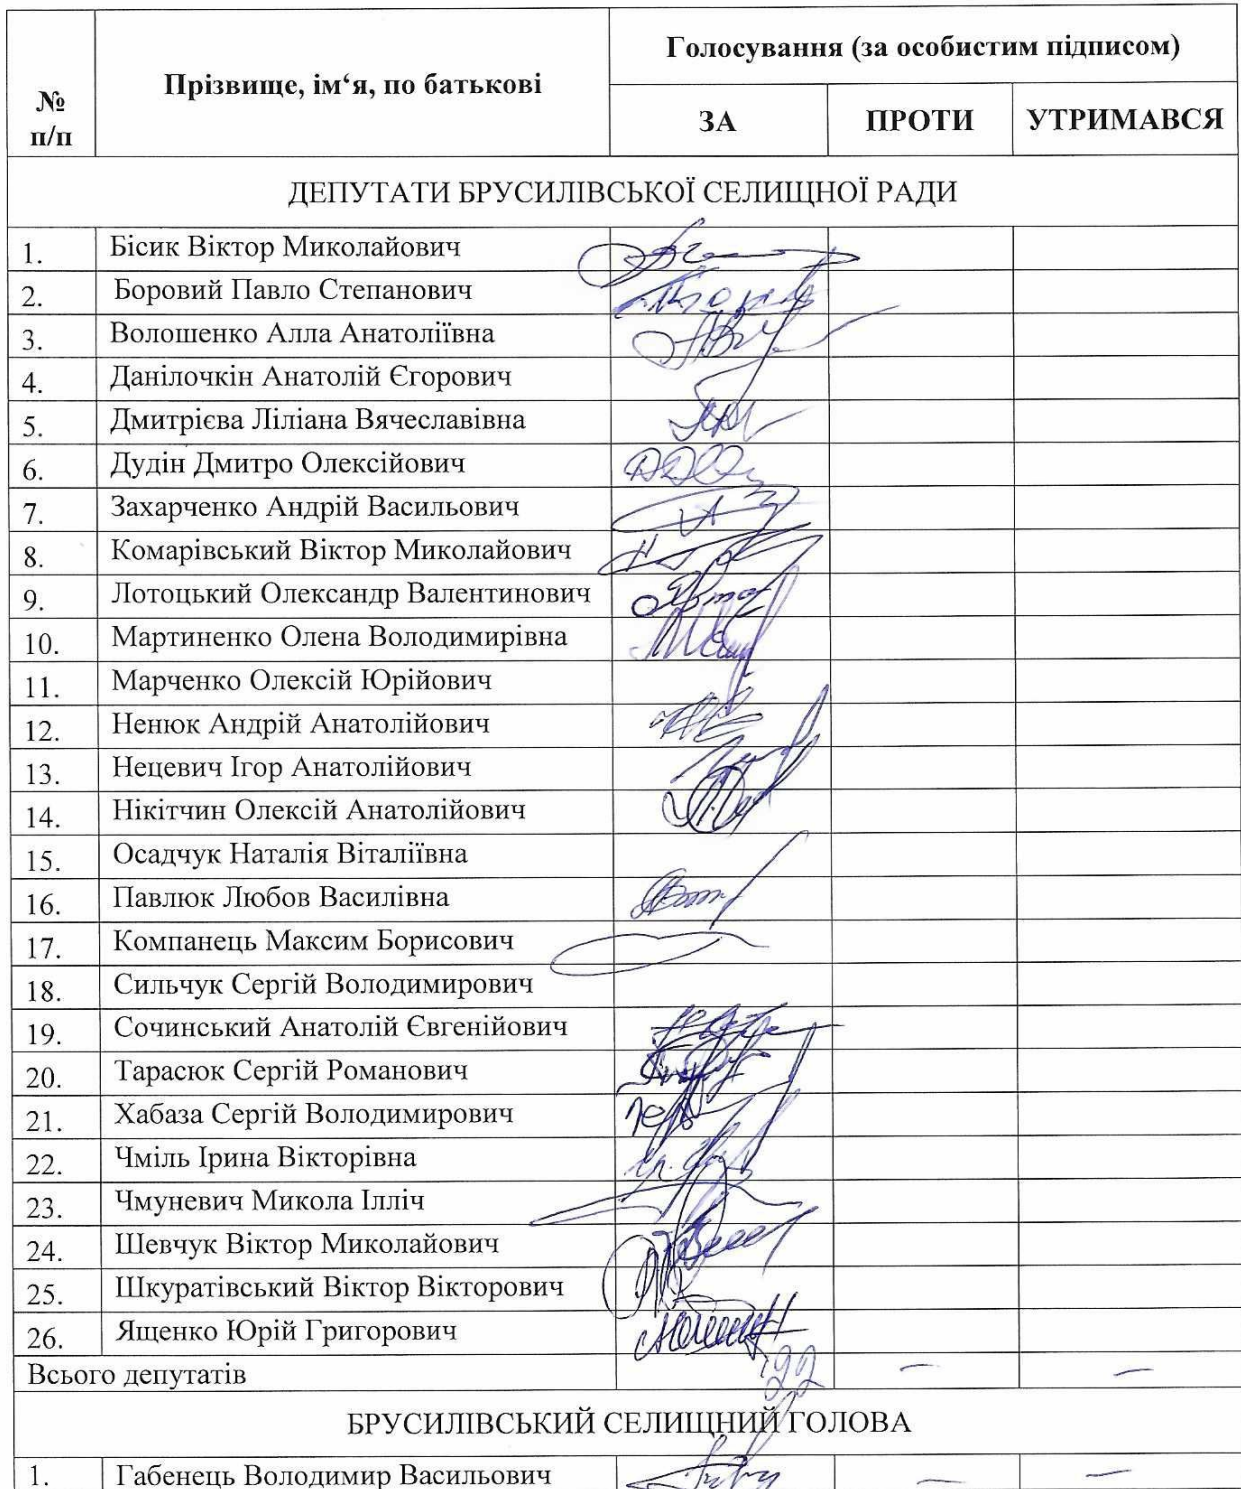 № п/п
Прізвище, ім‘я, по батькові
Голосування (за особистим підписом)
ЗА
ПРОТИ
УТРИМАВСЯ
ДЕПУТАТИ БРУСИЛІВСЬКОЇ СЕЛИЩНОЇ РАДИ
1. Бісик Віктор Миколайович
2. Боровий Павло Степанович
3. Волошенко Алла Анатоліївна
4. Данілочкін Анатолій Єгорович
5. Дмитрієва Ліліана Вячеславівна
6. Дудін Дмитро Олексійович
7. Захарченко Андрій Васильович
8. Комарівський Віктор Миколайович
9. Лотоцький Олександр Валентинович
10. Мартиненко Олена Володимирівна
11. Марченко Олексій Юрійович
12. Ненюк Андрій Анатолійович
13. Нецевич Ігор Анатолійович
14. Нікітчин Олексій Анатолійович
15. Осадчук Наталія Віталіївна
16. Павлюк Любов Василівна
17. Компанець Максим Борисович
18. Сильчук Сергій Володимирович
19. Сочинський Анатолій Євгенійович
20. Тарасюк Сергій Романович
21. Хабаза Сергій Володимирович
22. Чміль Ірина Вікторівна
23. Чмуневич Микола Ілліч
24. Шевчук Віктор Миколайович
25. Шкуратівський Віктор Вікторович
26. Ященко Юрій Григорович
Всього депутатів 22 – –
БРУСИЛІВСЬКИЙ СЕЛИЩНИЙ ГОЛОВА
1. Габенець Володимир Васильович – –